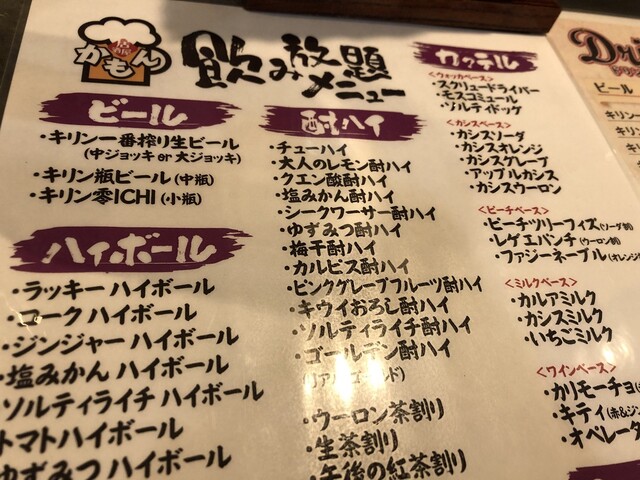 かもん
飲み放題
メニュー
ビール
・キリン一番搾り生ビール
(中ジョッキ or 大ジョッキ)
・キリン瓶ビール(中瓶)
・キリン零ICHI(小瓶)
ハイボール
・ラッキーハイボール
・コークハイボール
・ジンジャーハイボール
・塩みかんハイボール
ソルティライチハイボール
トマトハイボール
ゆずみつハイボール
酎ハイ
・チューハイ
・大人のレモン酎ハイ
・クエン酸酎ハイ
・塩みかん酎ハイ
・シークワーサー酎ハイ
・ゆずみつ酎ハイ
・梅干酎ハイ
・カルピス酎ハイ
・ピンクグレープフルーツ酎ハイ
・キウイおろし酎ハイ
・ソルティライチ酎ハイ
・ゴールデン酎ハイ
・ウーロン茶割り
・生茶割り
・午後の紅茶割り
カクテル
<ウォッカベース>
・スクリュードライバー
・モスコミュール
・ソルティドッグ
<カシスベース>
・カシスソーダ
・カシスオレンジ
・カシスグレープ
・アップルカシス
・カシスウーロン
<ピーチベース>
・ピーチツリーフィズ(ソーダ割)
・レゲエパンチ(ウーロン割)
・ファジーネーブル(オレンジ
<ミルクベース>
・カルアミルク
・カシスミルク
・いちごミルク
<ワインベース>
・カリモーチョ
・キティ(赤&ジン
・オペレータ
ビール
・キリン